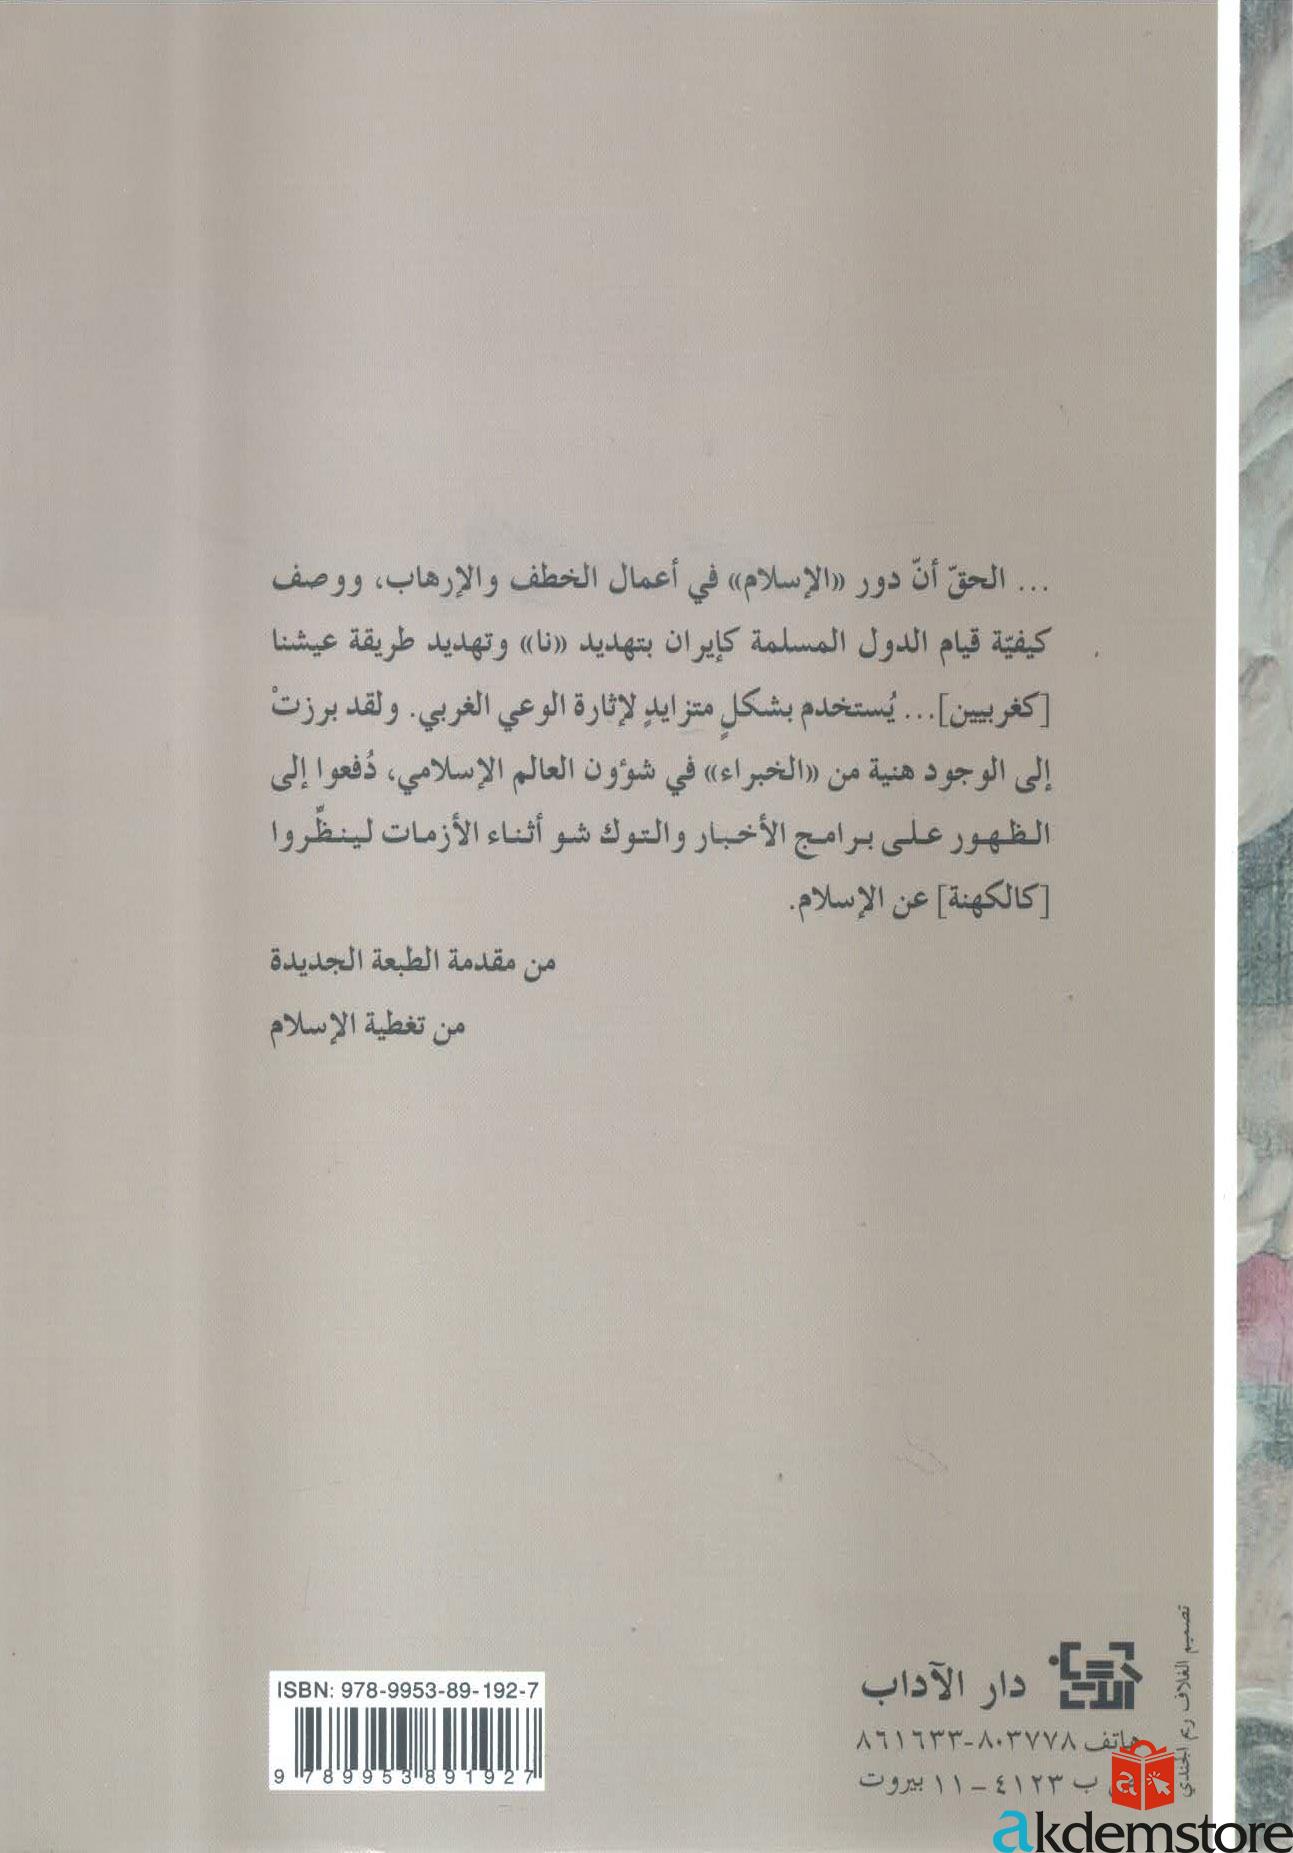 ... الحقّ أنّ دور «الإسلام» في أعمال الخطف والإرهاب، ووصف
كيفيّة قيام الدول المسلمة كإيران بتهديد «نا» وتهديد طريقة عيشنا
[كغربيين]... يُستخدم بشكلٍ متزايدٍ لإثارة الوعي الغربي. ولقد برزتْ
إلى الوجود هنية من «الخبراء» في شؤون العالم الإسلامي، دُفعوا إلى
الظهور على برامج الأخبار والتوك شو أثناء الأزمات لينظِّروا
[كالكهنة] عن الإسلام.
من مقدمة الطبعة الجديدة
من تغطية الإسلام
ISBN: 978-9953-89-192-7
9 789953 891927
دار الآداب
هاتف ٨٠٣٧٧٨-٨٦١٦٣٣
ب ٤١٢٣ – ١١ بيروت
تصميم الغلاف ريم الجندي
akdemstore